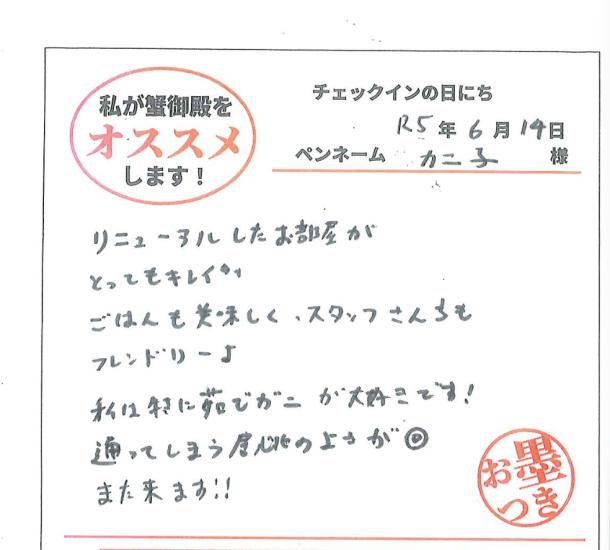 私が蟹御殿を
オススメ
します！
チェックインの日にち
R5年6月14日
ペンネーム カニ子 様
リニューアルしたお部屋が
とってもキレイ
ごはんも美味しく、スタッフさんも
フレンドリー♪
私は特に茹でガニが大好きです!
通ってしまう居心地のよさが◎
また来ます!!
お墨
つき